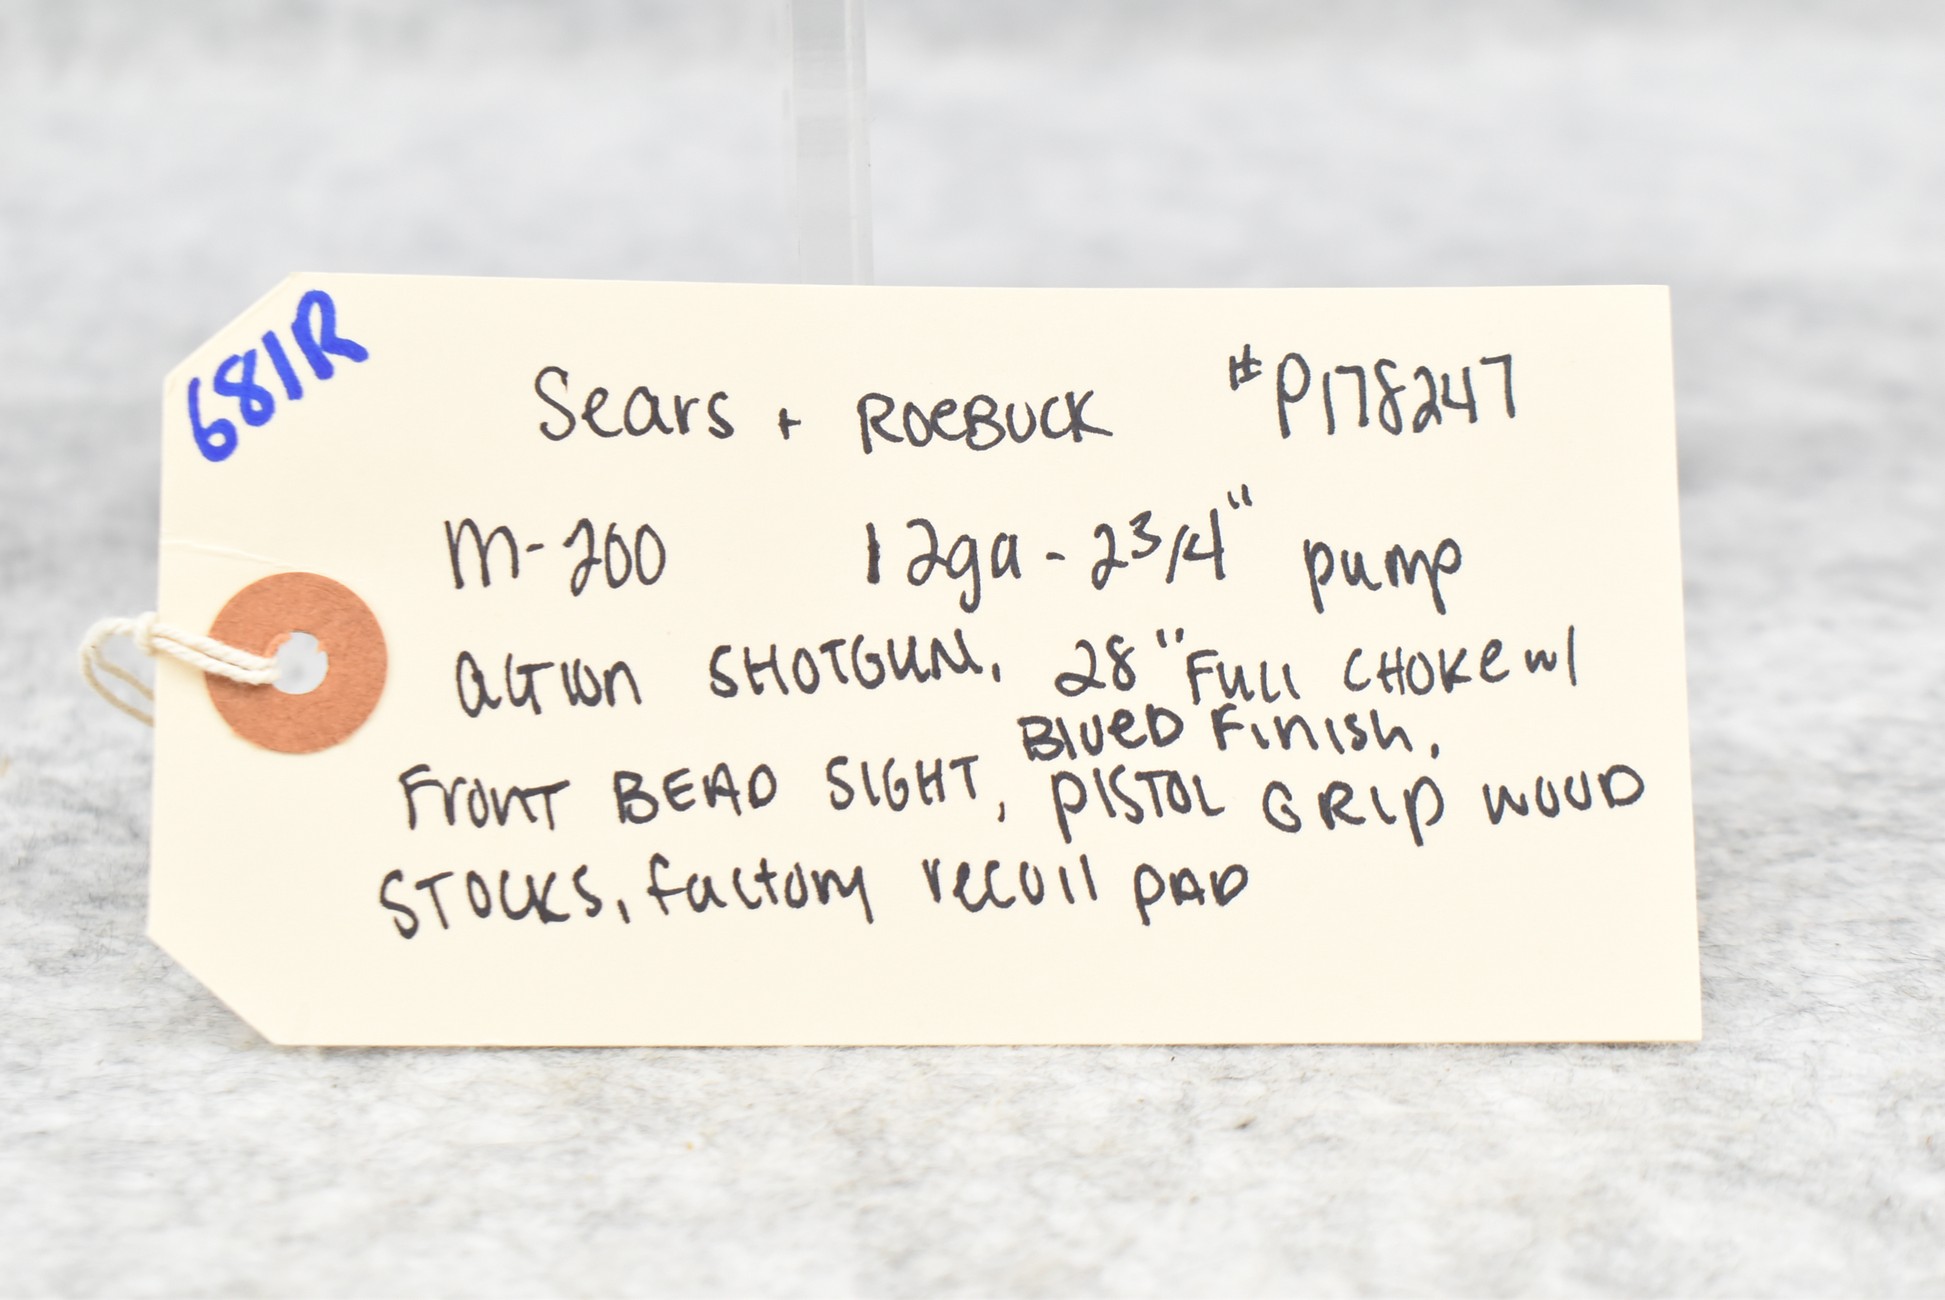 681R
Sears + ROEBUCK #P178247
M-200 12ga - 2 3/4" pump
action SHOTGUN, 28" FULL CHOKE w/
Blued Finish,
FRONT BEAD SIGHT, PISTOL GRIP WOOD
STOCKS, factory recoil PAD